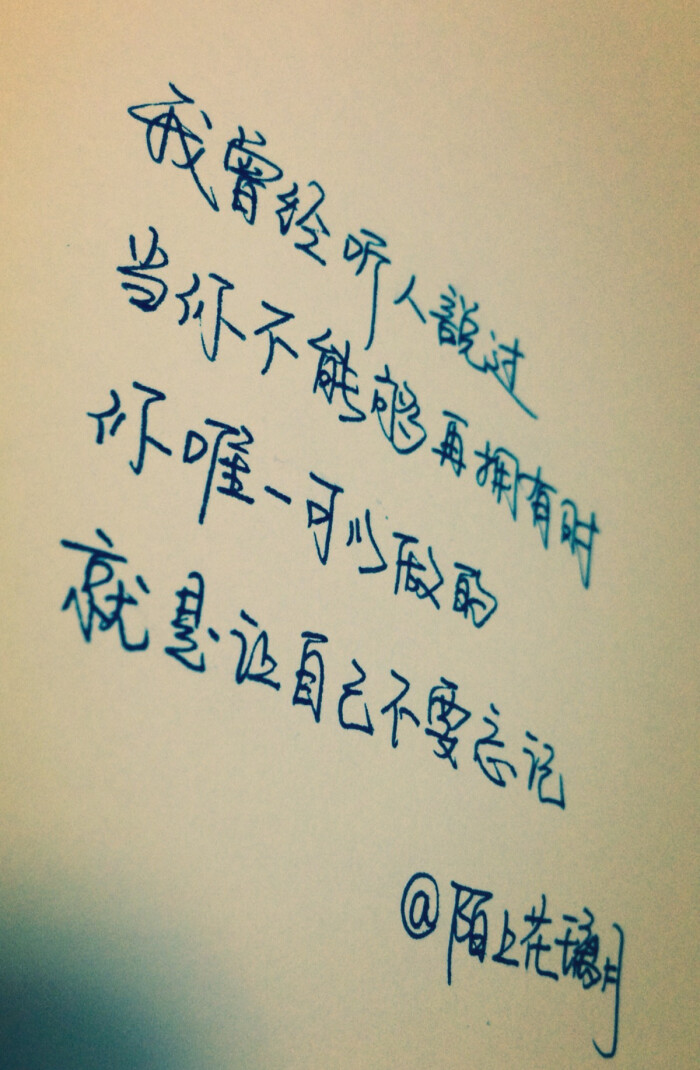 我曾经听人說过
当你不能够再拥有时
你唯一可以做的
就是让自己不要忘记
@陌上花璃月